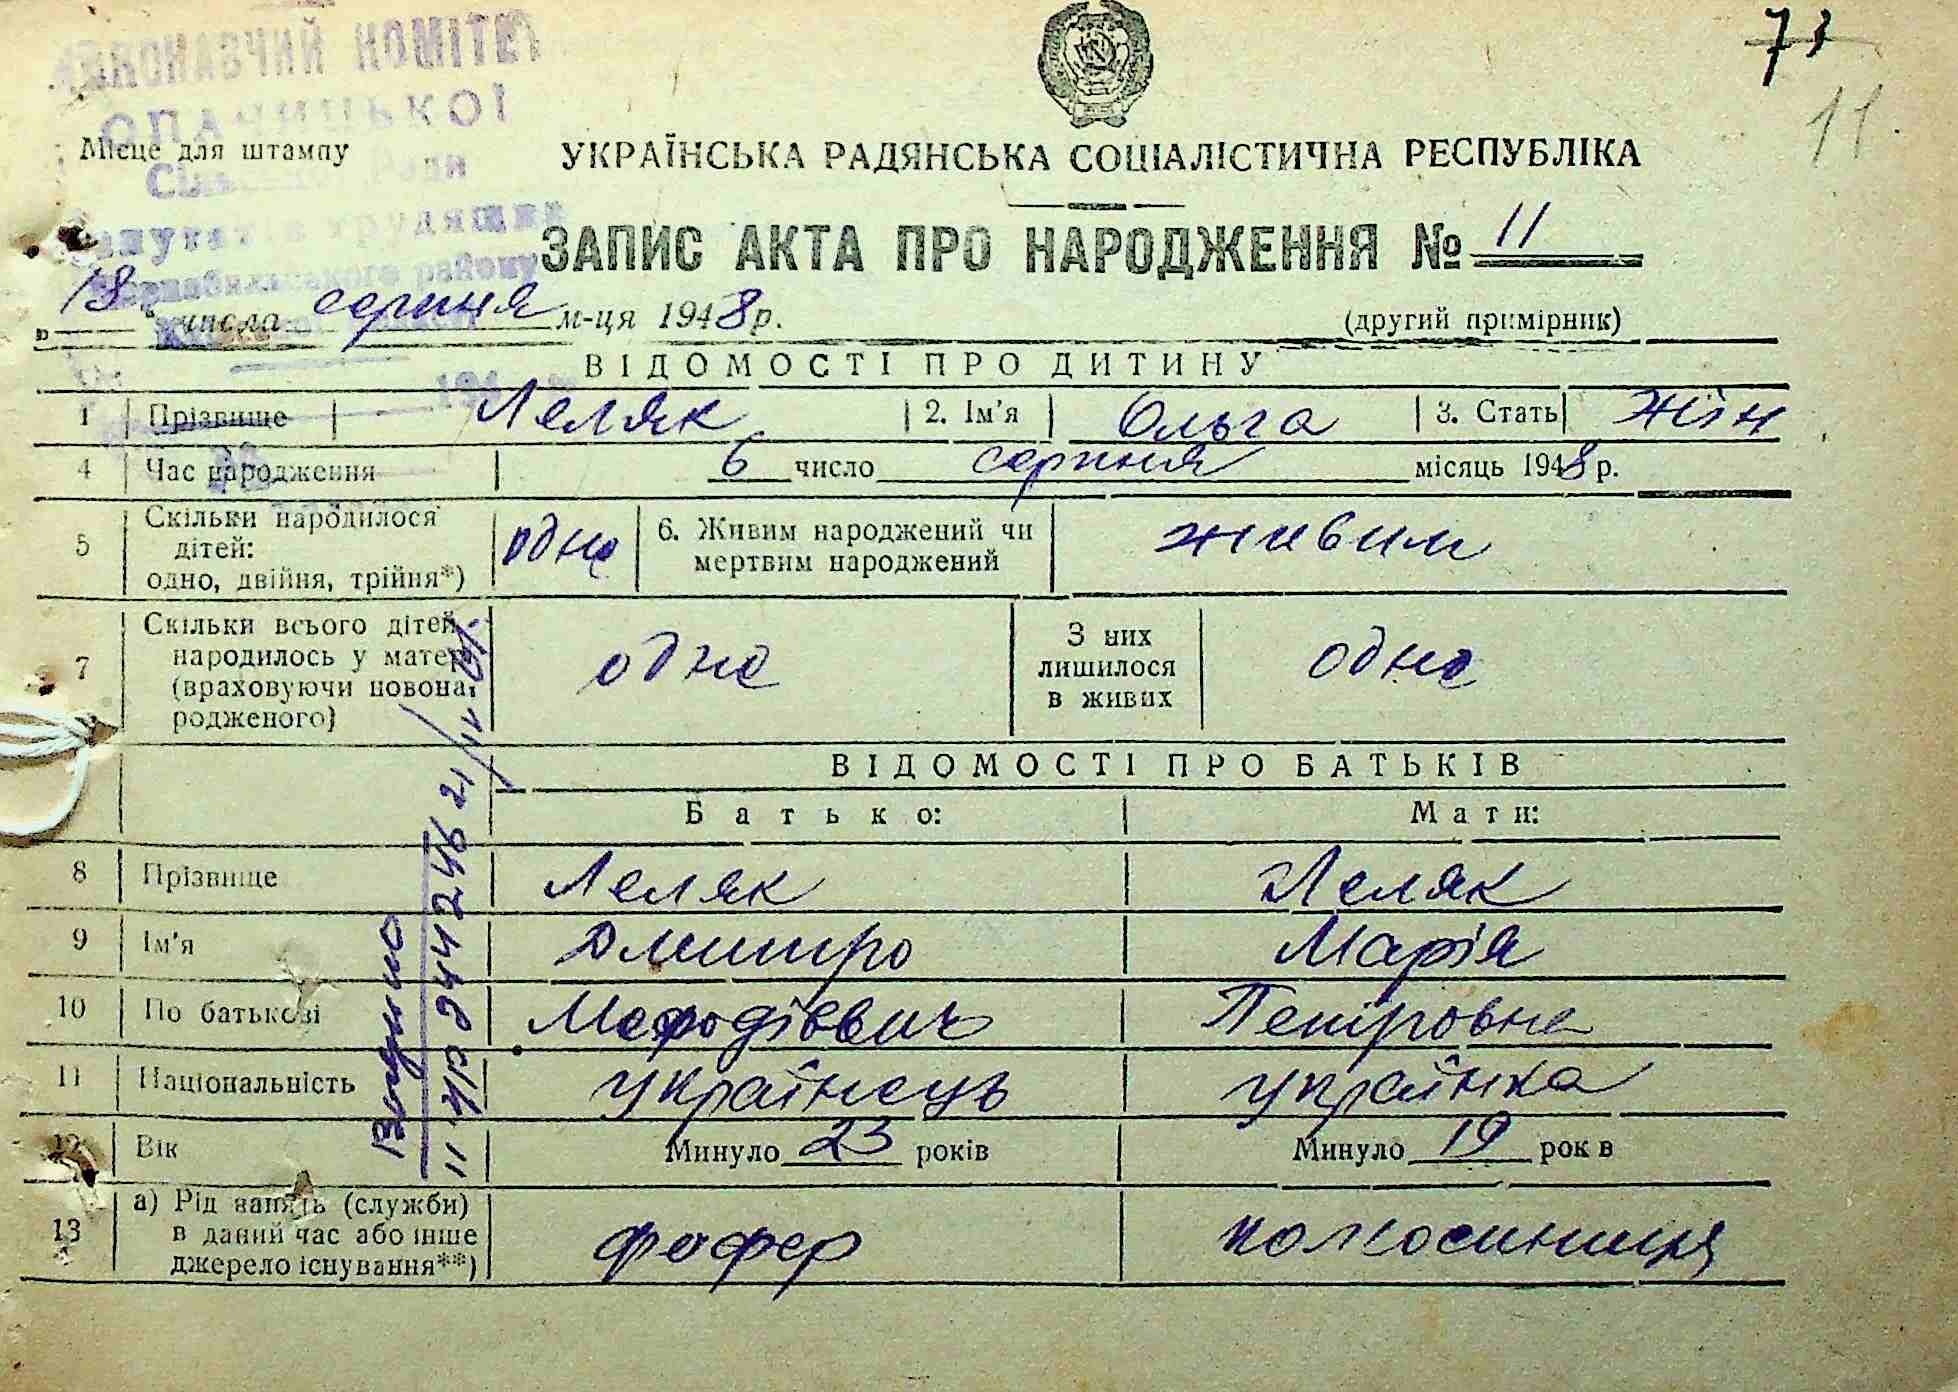 73
11
ВИКОНАВЧИЙ КОМІТЕТ
ОПАЧИЦЬКОЇ
Місце для штампу
Сільської Ради
депутатів трудящих
Чорнобильського району
УКРАЇНСЬКА РАДЯНСЬКА СОЦІАЛІСТИЧНА РЕСПУБЛІКА
ЗАПИС АКТА ПРО НАРОДЖЕННЯ № 11
„ 18 " числа серпня м-ця 1948 р.
(другий примірник)
ВІДОМОСТІ ПРО ДИТИНУ
1 Прізвище Леляк 2. Ім'я Ольга 3. Стать жін
4 Час народження 6 число серпня місяць 1948 р.
5 Скільки народилося дітей: одно, двійня, трійня*) одно 6. Живим народжений чи мертвим народжений живим
7 Скільки всього дітей народилось у матері (враховуючи новонародженого) одно З них лишилося в живих одно
ВІДОМОСТІ ПРО БАТЬКІВ
Батько: Мати:
8 Прізвище Леляк Леляк
9 Ім'я Дмитро Марія
10 По батькові Мефодієвич Петровна
11 Національність українець українка
12 Вік Минуло 23 років Минуло 19 рок в
13 а) Рід занять (служби) в даний час або інше джерело існування**) шофер колгоспниця